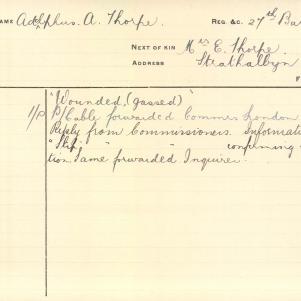 NAME Adolphus. A. Thorpe. REG. &C. 27th Ba
NEXT OF KIN Mrs E. Thorpe.
ADDRESS Strathalbyn
"Wounded, (gassed)"
P/Cable forwarded Commrs London
Reply from Commissioners. Informati
" " confirming
tion. Same forwarded Inquirer.